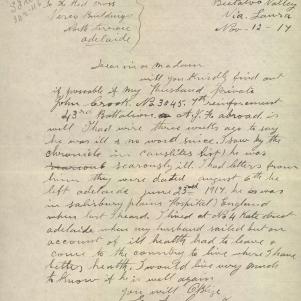 To the Red Cross
Beetaloo Valley
Verco Buildings
Via. Laura
North Terrace
Nov-12-17
adelaide
Dear sir or madam
will you Kindly find out
if possible of my Husband private
John Crook. No 3045. 7th reinforcement
43rd Battalion A.I.F. abroad. is
well I had wire three weeks ago to say
he was ill & no word since. I saw by the
chronicle in causlites list he was
seriously ill. I had letters from
him they were dated august 6th he
left adelaide june 23rd 1917. he was in
in salisbury plains Hospital England
when last I heard. I lived at No 4 Kate street
adelaide when my husband sailed but on
account of ill health had to leave &
come to the country to live where I have
better health, I would like very much
to know if he is well again.
you will Oblige